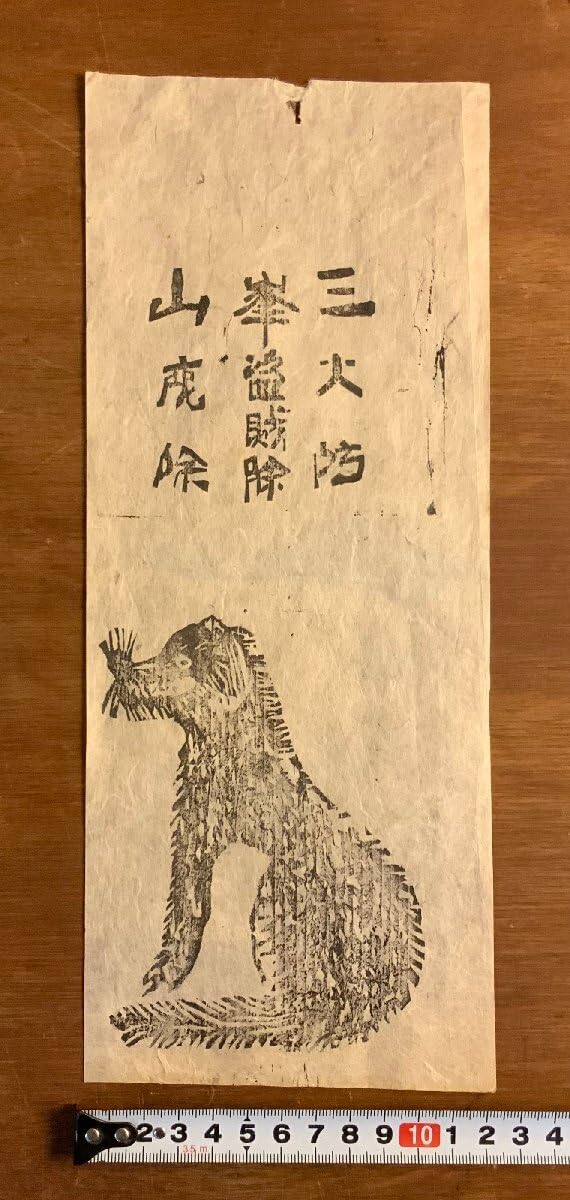 三火防
峯盗賊除
山除
2 3 4 5 6 7 8 9 10 1 2 3 4
3.5m